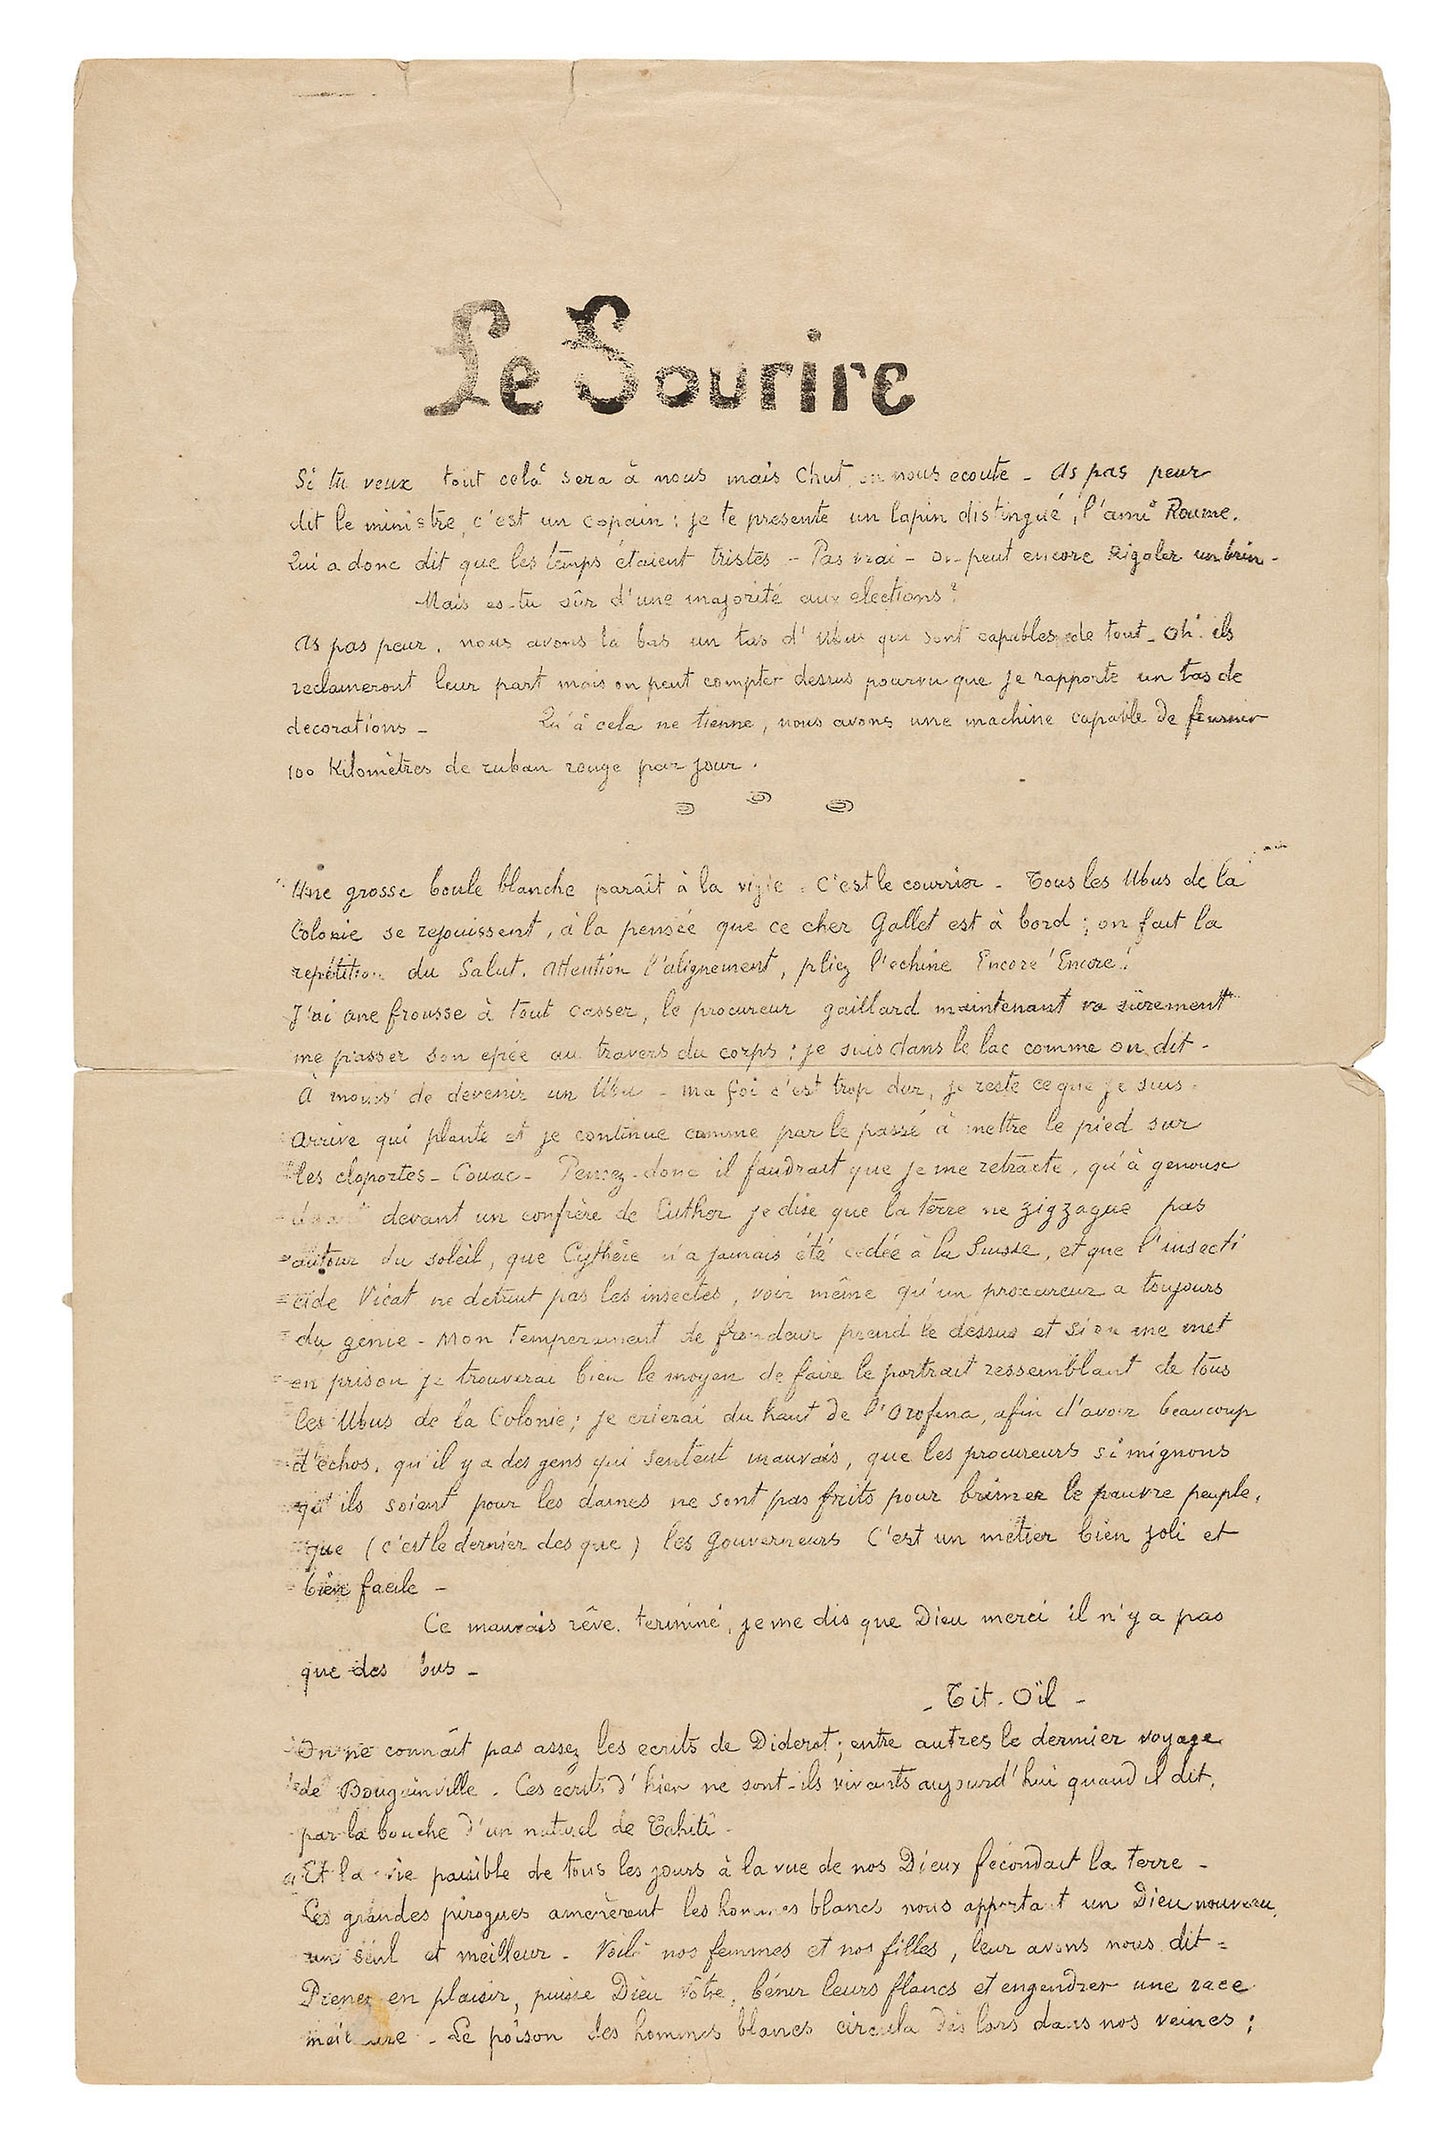 Le Sourire
Si tu veux tout cela sera à nous mais Chut on nous ecoute - As pas peur
dit le ministre, c'est un copain : je te presente un lapin distingué, l'ami Roume.
Qui a donc dit que les temps étaient tristes - Pas vrai - On peut encore Rigoler un brin -
Mais es-tu sûr d'une majorité aux elections ?
As pas peur, nous avons là bas un tas d'Ubus qui sont capables de tout - Oh! ils
reclameront leur part mais on peut compter dessus pourvu que je rapporte un tas de
decorations - Qu'à cela ne tienne, nous avons une machine capable de fournir
100 Kilomètres de ruban rouge par jour.
Une grosse boule blanche paraît à la vigie. C'est le courrier - Tous les Ubus de la
Colonie se rejouissent, à la pensée que ce cher Gallet est à bord ; on fait la
repétition du Salut. Attention l'alignement, pliez l'echine Encore! Encore!
J'ai une frousse à tout casser, le procureur gaillard maintenant va sûrement
me passer son epée au travers du corps ; je suis dans le lac comme on dit -
A moins de devenir un Ubu - ma foi c'est trop dur, je reste ce que je suis -
Arrive qui plante et je continue comme par le passé à mettre le pied sur
les cloportes - Couac - Pensez-donc il faudrait que je me retracte, qu'à genoux
devant un confrère de Luther je dise que la terre ne zigzague pas
autour du soleil, que Cythère n'a jamais été cédée à la Suisse, et que l'insecti
= cide Vicat ne detruit pas les insectes, voir même qu'un procureur a toujours
du genie - Mon temperament de frondeur prend le dessus et si on me met
en prison je trouverai bien le moyen de faire le portrait ressemblant de tous
les Ubus de la Colonie ; je crierai du haut de l'Orofena, afin d'avoir beaucoup
d'echos, qu'il y a des gens qui sentent mauvais, que les procureurs si mignons
qu'ils soient pour les dames ne sont pas faits pour brimer le pauvre peuple,
que (c'est le dernier des que) les Gouverneurs C'est un métier bien joli et
bien facile -
Ce mauvais rêve terminé, je me dis que Dieu merci il n'y a pas
que des bus -
- Tit-Oïl -
On ne connaît pas assez les ecrits de Diderot ; entre autres le dernier voyage
de Bougainville. Ces ecrits d'hier ne sont-ils vivants aujourd'hui quand il dit,
par la bouche d'un naturel de Tahiti -
Et la vie paisible de tous les jours à la vue de nos Dieux fecondait la terre -
Les grandes pirogues amenèrent les hommes blancs nous apportant un Dieu nouveau,
un seul et meilleur - Voilà nos femmes et nos filles, leur avons nous dit =
Prenez en plaisir, puisse Dieu vôtre, bénir leurs flancs et engendrer une race
meilleure - Le poison des hommes blancs circula dès lors dans nos veines ;